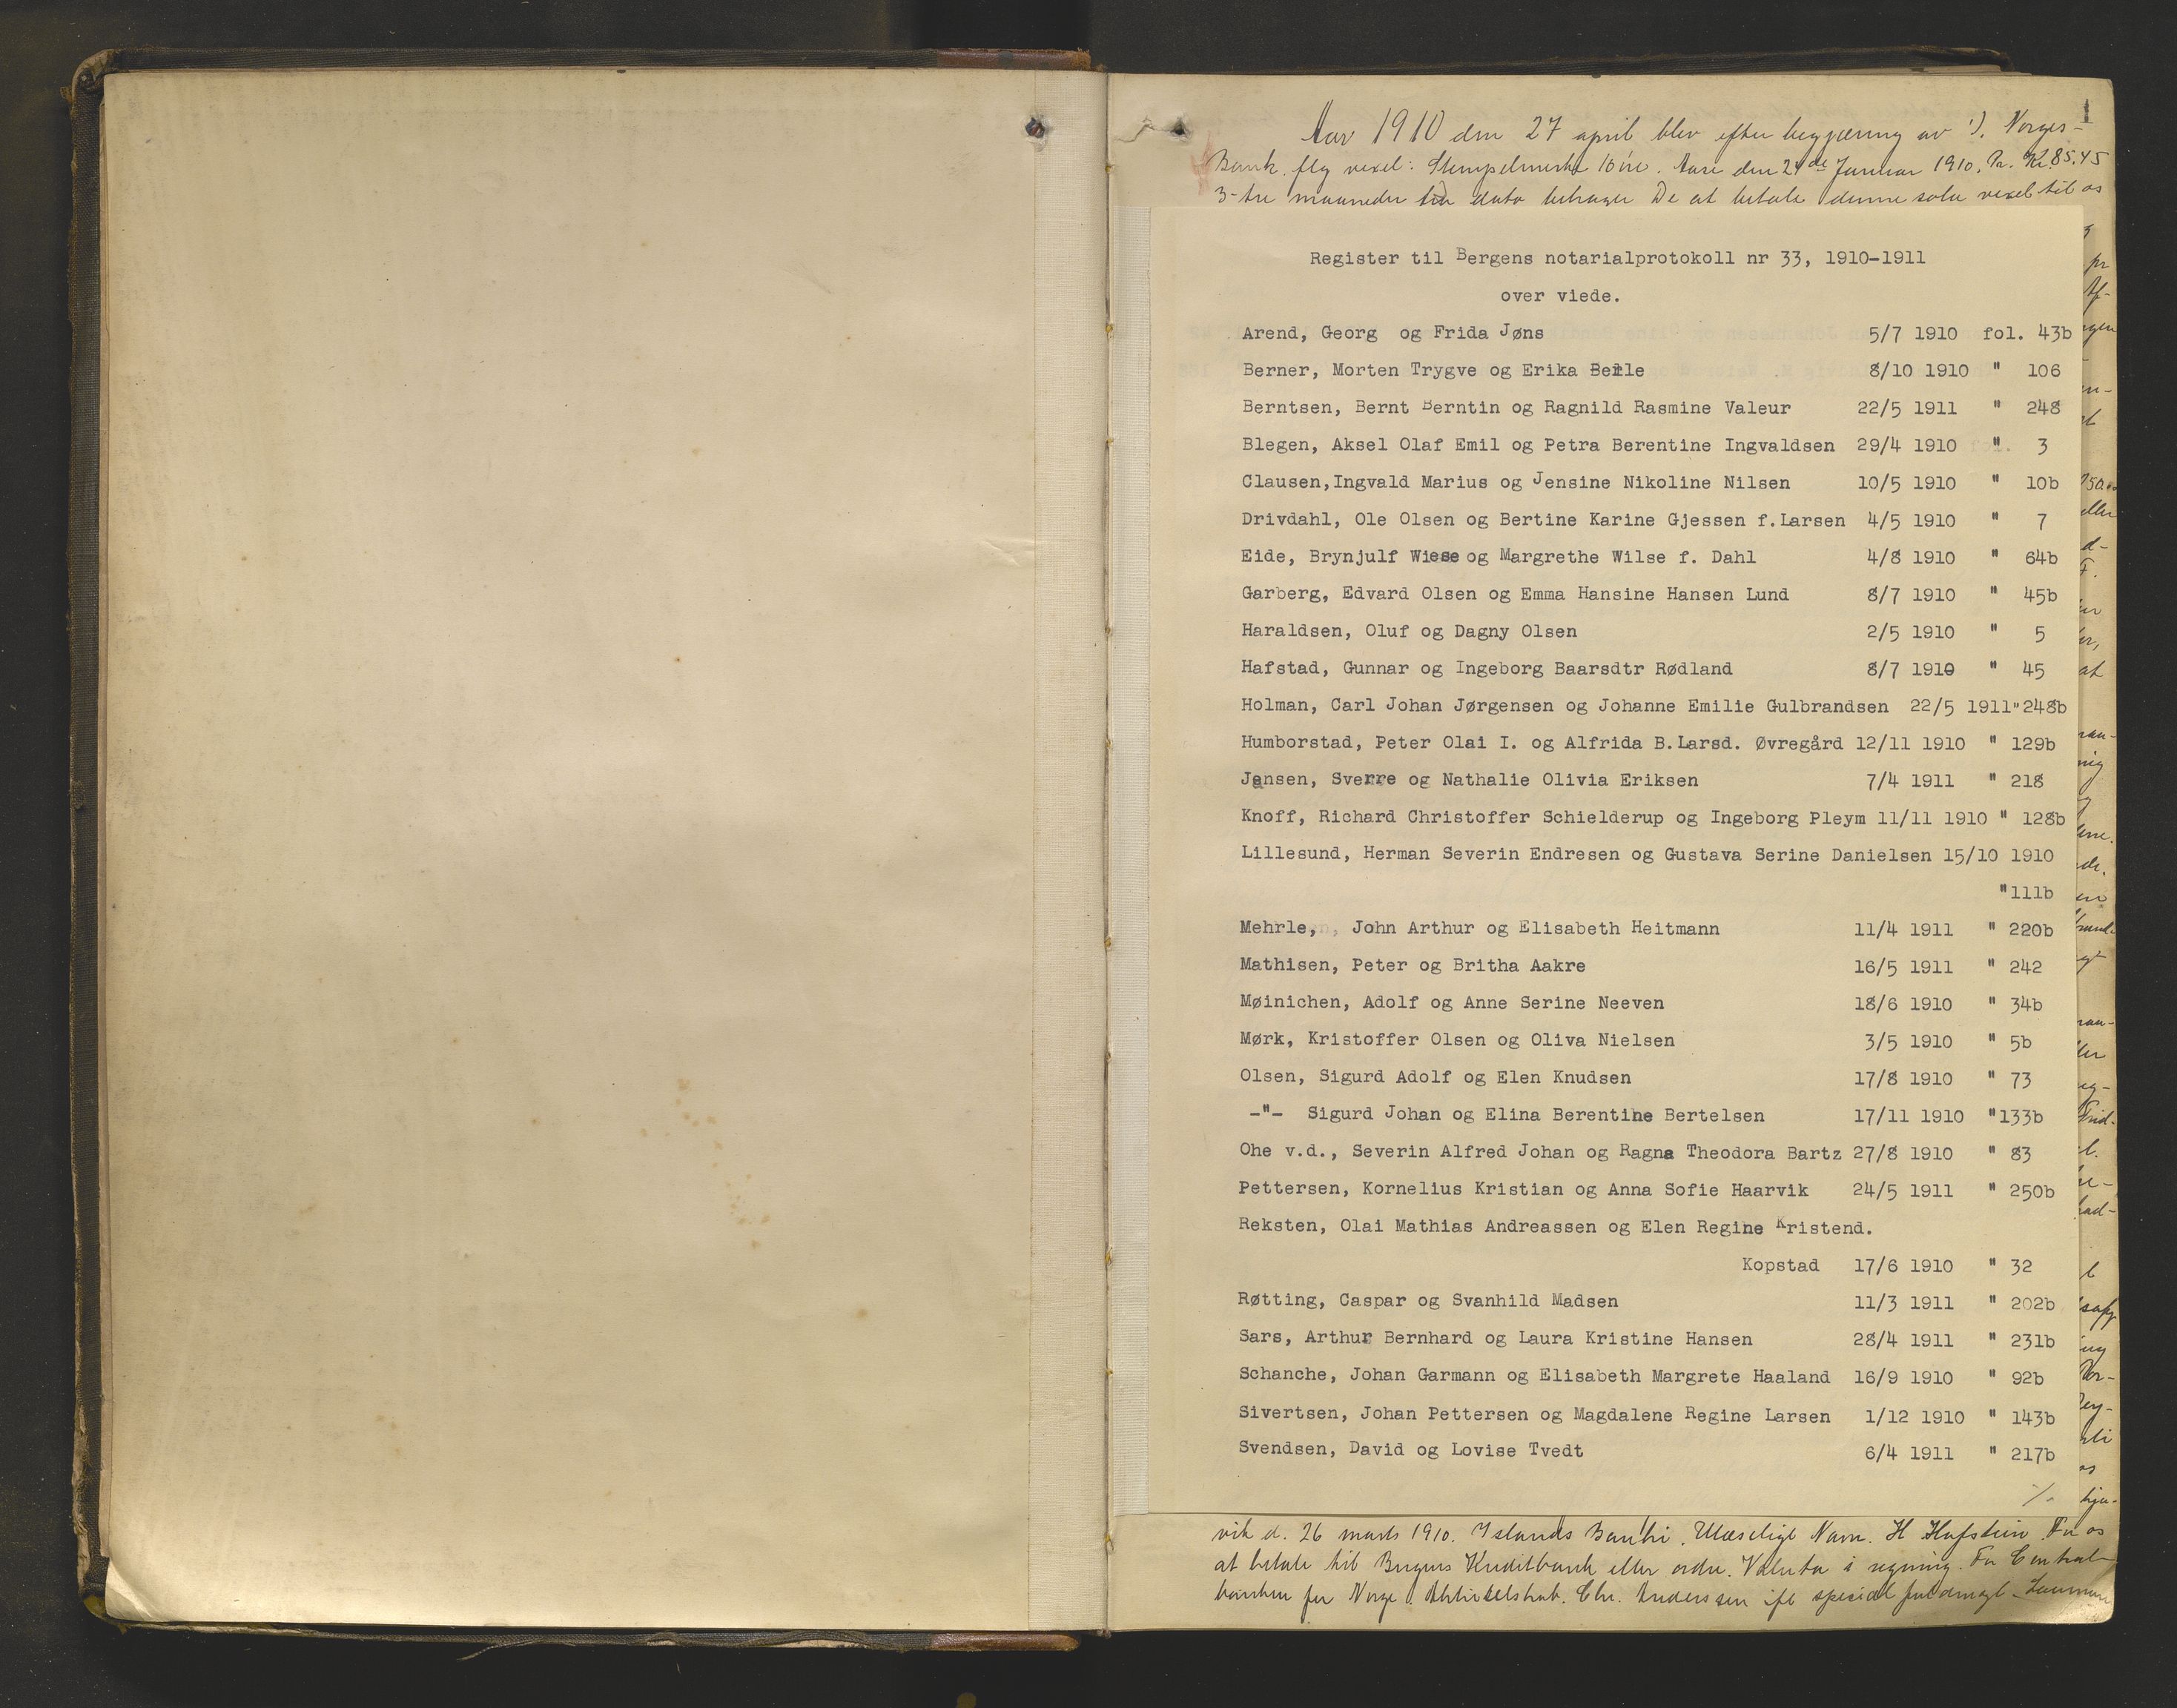 1
Aar 1910 den 27 april blev efter begjæring av 1). Norges-
Bank flg vexel: Stempelmerke 10 øre. Aase den 24de Januar 1910. Pr. Kr. 85.45
3-tre maaneder fra dato behager De at betale denne sola vexel til os
Register til Bergens notarialprotokoll nr 33, 1910-1911
over viede.
Arend, Georg og Frida Jøns 5/7 1910 fol. 43b
Berner, Morten Trygve og Erika Beile 8/10 1910 " 106
Berntsen, Bernt Berntin og Ragnild Rasmine Valeur 22/5 1911 " 248
Blegen, Aksel Olaf Emil og Petra Berentine Ingvaldsen 29/4 1910 " 3
Clausen,Ingvald Marius og Jensine Nikoline Nilsen 10/5 1910 " 10b
Drivdahl, Ole Olsen og Bertine Karine Gjessen f.Larsen 4/5 1910 " 7
Eide, Brynjulf Wiese og Margrethe Wilse f. Dahl 4/8 1910 " 64b
Garberg, Edvard Olsen og Emma Hansine Hansen Lund 8/7 1910 " 45b
Haraldsen, Oluf og Dagny Olsen 2/5 1910 " 5
Hafstad, Gunnar og Ingeborg Baarsdtr Rødland 8/7 1910 " 45
Holman, Carl Johan Jørgensen og Johanne Emilie Gulbrandsen 22/5 1911"248b
Humborstad, Peter Olai I. og Alfrida B.Larsd. Øvregård 12/11 1910 " 129b
Jansen, Sverre og Nathalie Olivia Eriksen 7/4 1911 " 218
Knoff, Richard Christoffer Schielderup og Ingeborg Pleym 11/11 1910 " 128b
Lillesund, Herman Severin Endresen og Gustava Serine Danielsen 15/10 1910
"111b
Mehrle, John Arthur og Elisabeth Heitmann 11/4 1911 " 220b
Mathisen, Peter og Britha Aakre 16/5 1911 " 242
Møinichen, Adolf og Anne Serine Neeven 18/6 1910 " 34b
Mørk, Kristoffer Olsen og Oliva Nielsen 3/5 1910 " 5b
Olsen, Sigurd Adolf og Elen Knudsen 17/8 1910 " 73
-"- Sigurd Johan og Elina Berentine Bertelsen 17/11 1910 "133b
Ohe v.d., Severin Alfred Johan og Ragna Theodora Bartz 27/8 1910 " 83
Pettersen, Kornelius Kristian og Anna Sofie Haarvik 24/5 1911 " 250b
Reksten, Olai Mathias Andreassen og Elen Regine Kristend.
Kopstad 17/6 1910 " 32
Røtting, Caspar og Svanhild Madsen 11/3 1911 " 202b
Sars, Arthur Bernhard og Laura Kristine Hansen 28/4 1911 " 231b
Schanche, Johan Garmann og Elisabeth Margrete Haaland 16/9 1910 " 92b
Sivertsen, Johan Pettersen og Magdalene Regine Larsen 1/12 1910 " 143b
Svendsen, David og Lovise Tvedt 6/4 1911 " 217b
vik d. 26 marts 1910. Islands Banki. Ulæseligt Navn. H Hafstein. For os
at betale til Bergens Kreditbank eller ordre. Valuta i regning. For Central-
banken for Norge. Aktieselskab. Chr. Anderssen ifl special fuldmagt